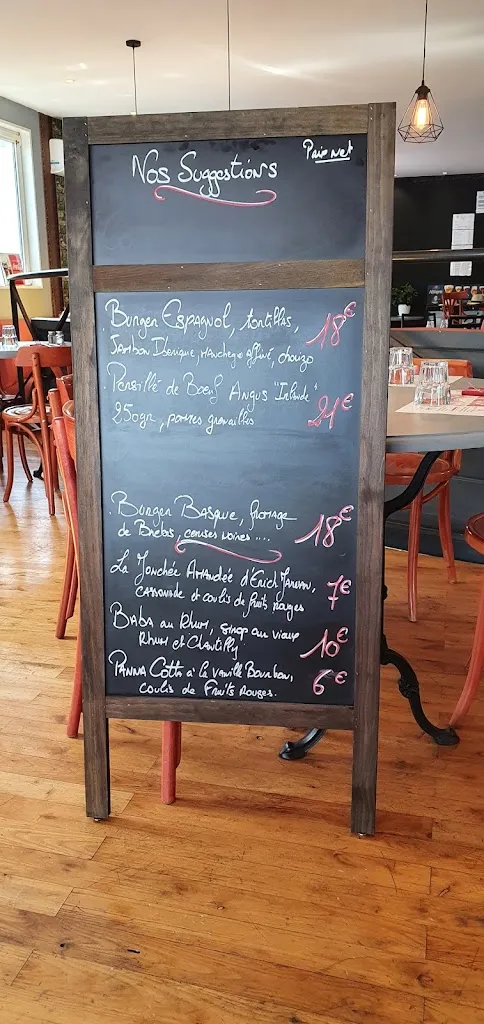 Nos Suggestions
Prix net
Burger Espagnol, tortillas, 18€
Jambon Iberique, Manchego affiné, chorizo
Persillé de Boeuf Angus "Irlande" 21€
250gr, pommes grenailles
Burger Basque, fromage 18€
de Brebis, cerises noires ....
La Jonchée Amandée d'Erich
cassonade et coulis de fruits rouges 7€
Baba au Rhum, sirop au vieux 10€
Rhum et Chantilly
Panna Cotta à la vanille Bourbon, 6€
coulis de Fruits Rouges.